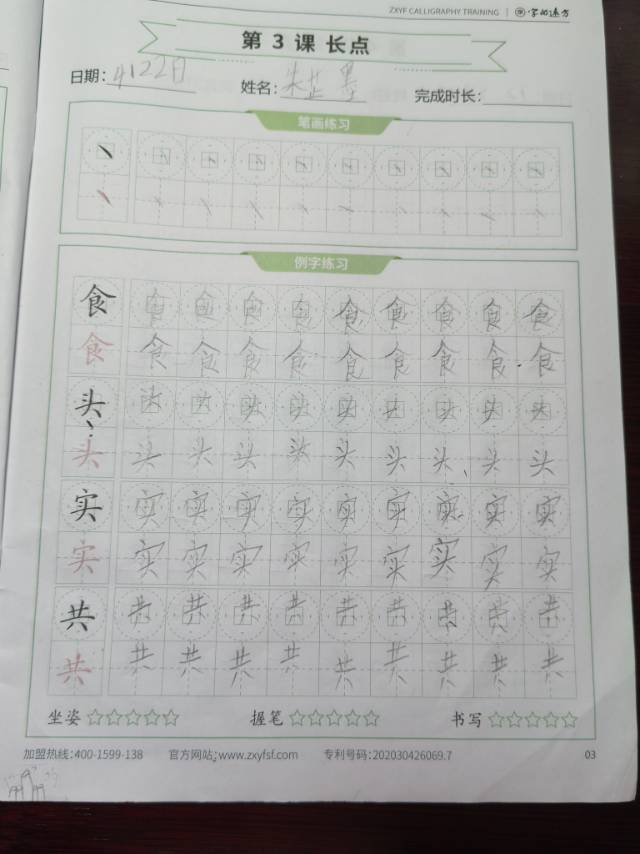 ZXYF CALLIGRAPHY TRAINING 字的远方
第 3 课 长点
日期: 4122日 姓名: 朱芷墨 完成时长:
笔画练习
例字练习
食 食 食 食 食 食 食 食 食 食
食 食 食 食 食 食 食 食 食 食
头 头 头 头 头 头 头 头 头 头
头 头 头 头 头 头 头 头 头 头
实 实 实 实 实 实 实 实 实 实
实 实 实 实 实 实 实 实 实 实
共 共 共 共 共 共 共 共 共 共
共 共 共 共 共 共 共 共 共 共
坐姿 握笔 书写
加盟热线:400-1599-138 官方网站:www.zxyfsf.com 专利号码:202030426069.7 03